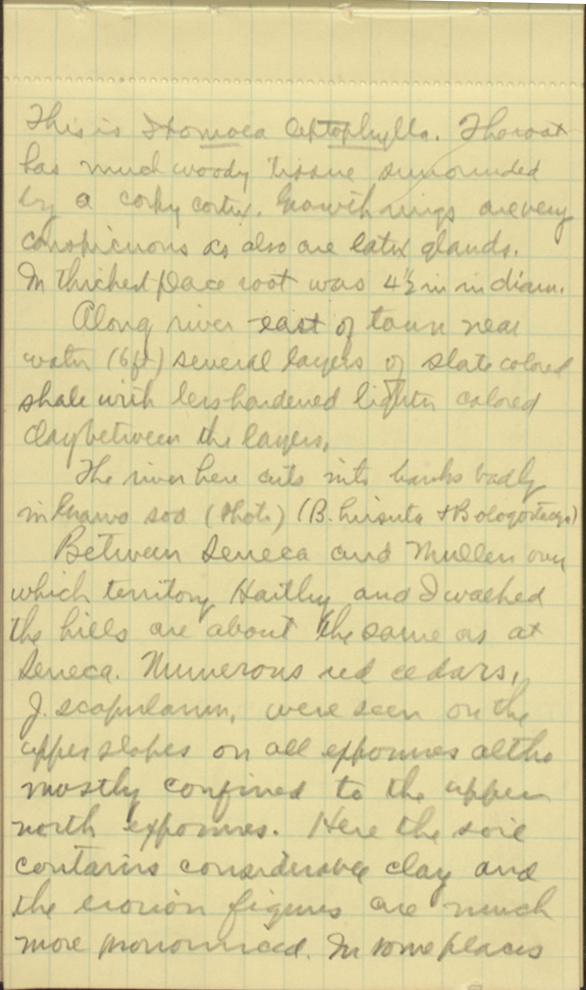 This is Ipomoea leptophylla. The root
has much woody tissue surrounded
by a corky cortex. Growth rings are very
conspicuous as also are latex glands.
In thickest place root was 4½ in in diam.
Along river east of town near
water (6ft) several layers of slate colored
shale with less hardened lighter colored
clay between the layers.
The river here cuts into banks badly
in sod (Photo) (B. hirsuta +
Between Seneca and Mullen over
which territory and I walked
the hills are about the same as at
Seneca. Numerous red cedars,
J. scopulorum, were seen on the
upper slopes on all exposures altho
mostly confined to the upper
north exposures. Here the soil
contains considerable clay and
the erosion figures are much
more pronounced. In some places